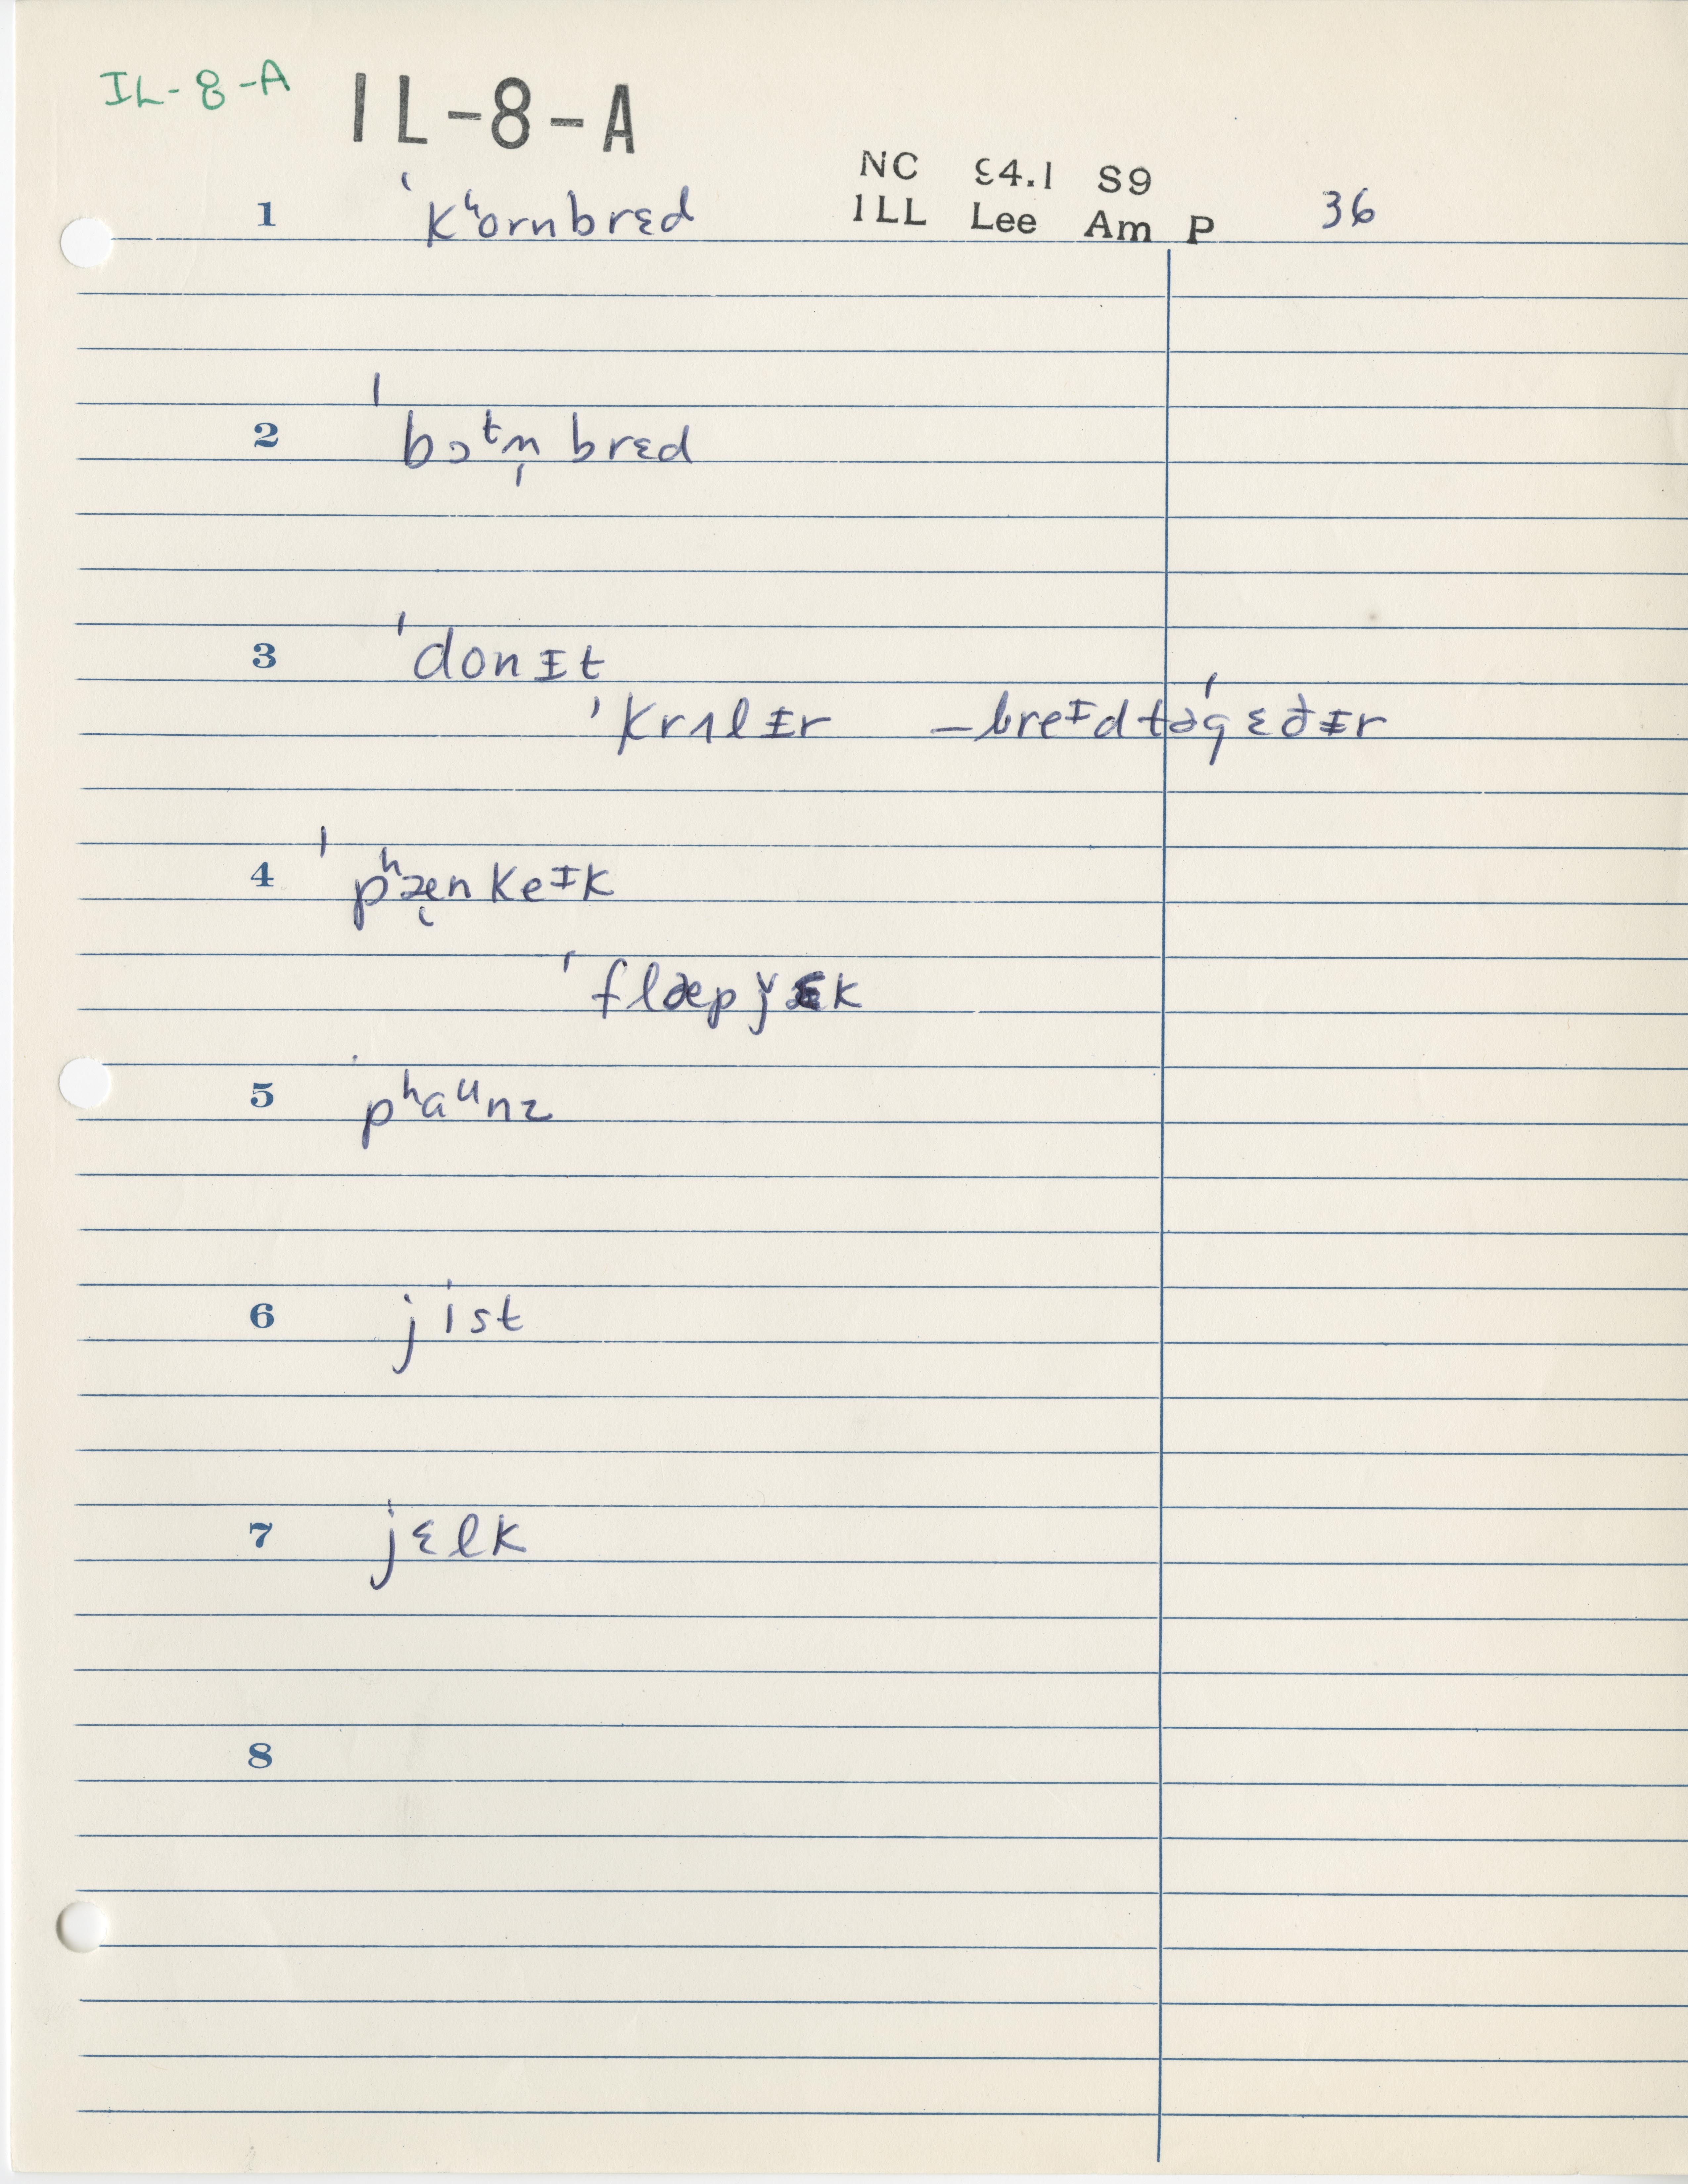 IL-8-A IL-8-A
NC 84.1 S9
ILL Lee Am P 36
1 ˈkʰornbrɛd
2 ˈbɔᵗn̩ brɛd
3 ˈdonɪt
ˈkrʌlɪr – breᶦdtəˈgɛðɪr
4 ˈpʰæ̨nkeᶦk
ˈflæpǰɛk
5 pʰaᵘnz
6 jist
7 jɛlk
8